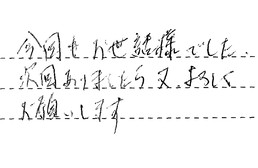 今回もお世話様でした.
次回ありましたら又.よろしく
お願いします